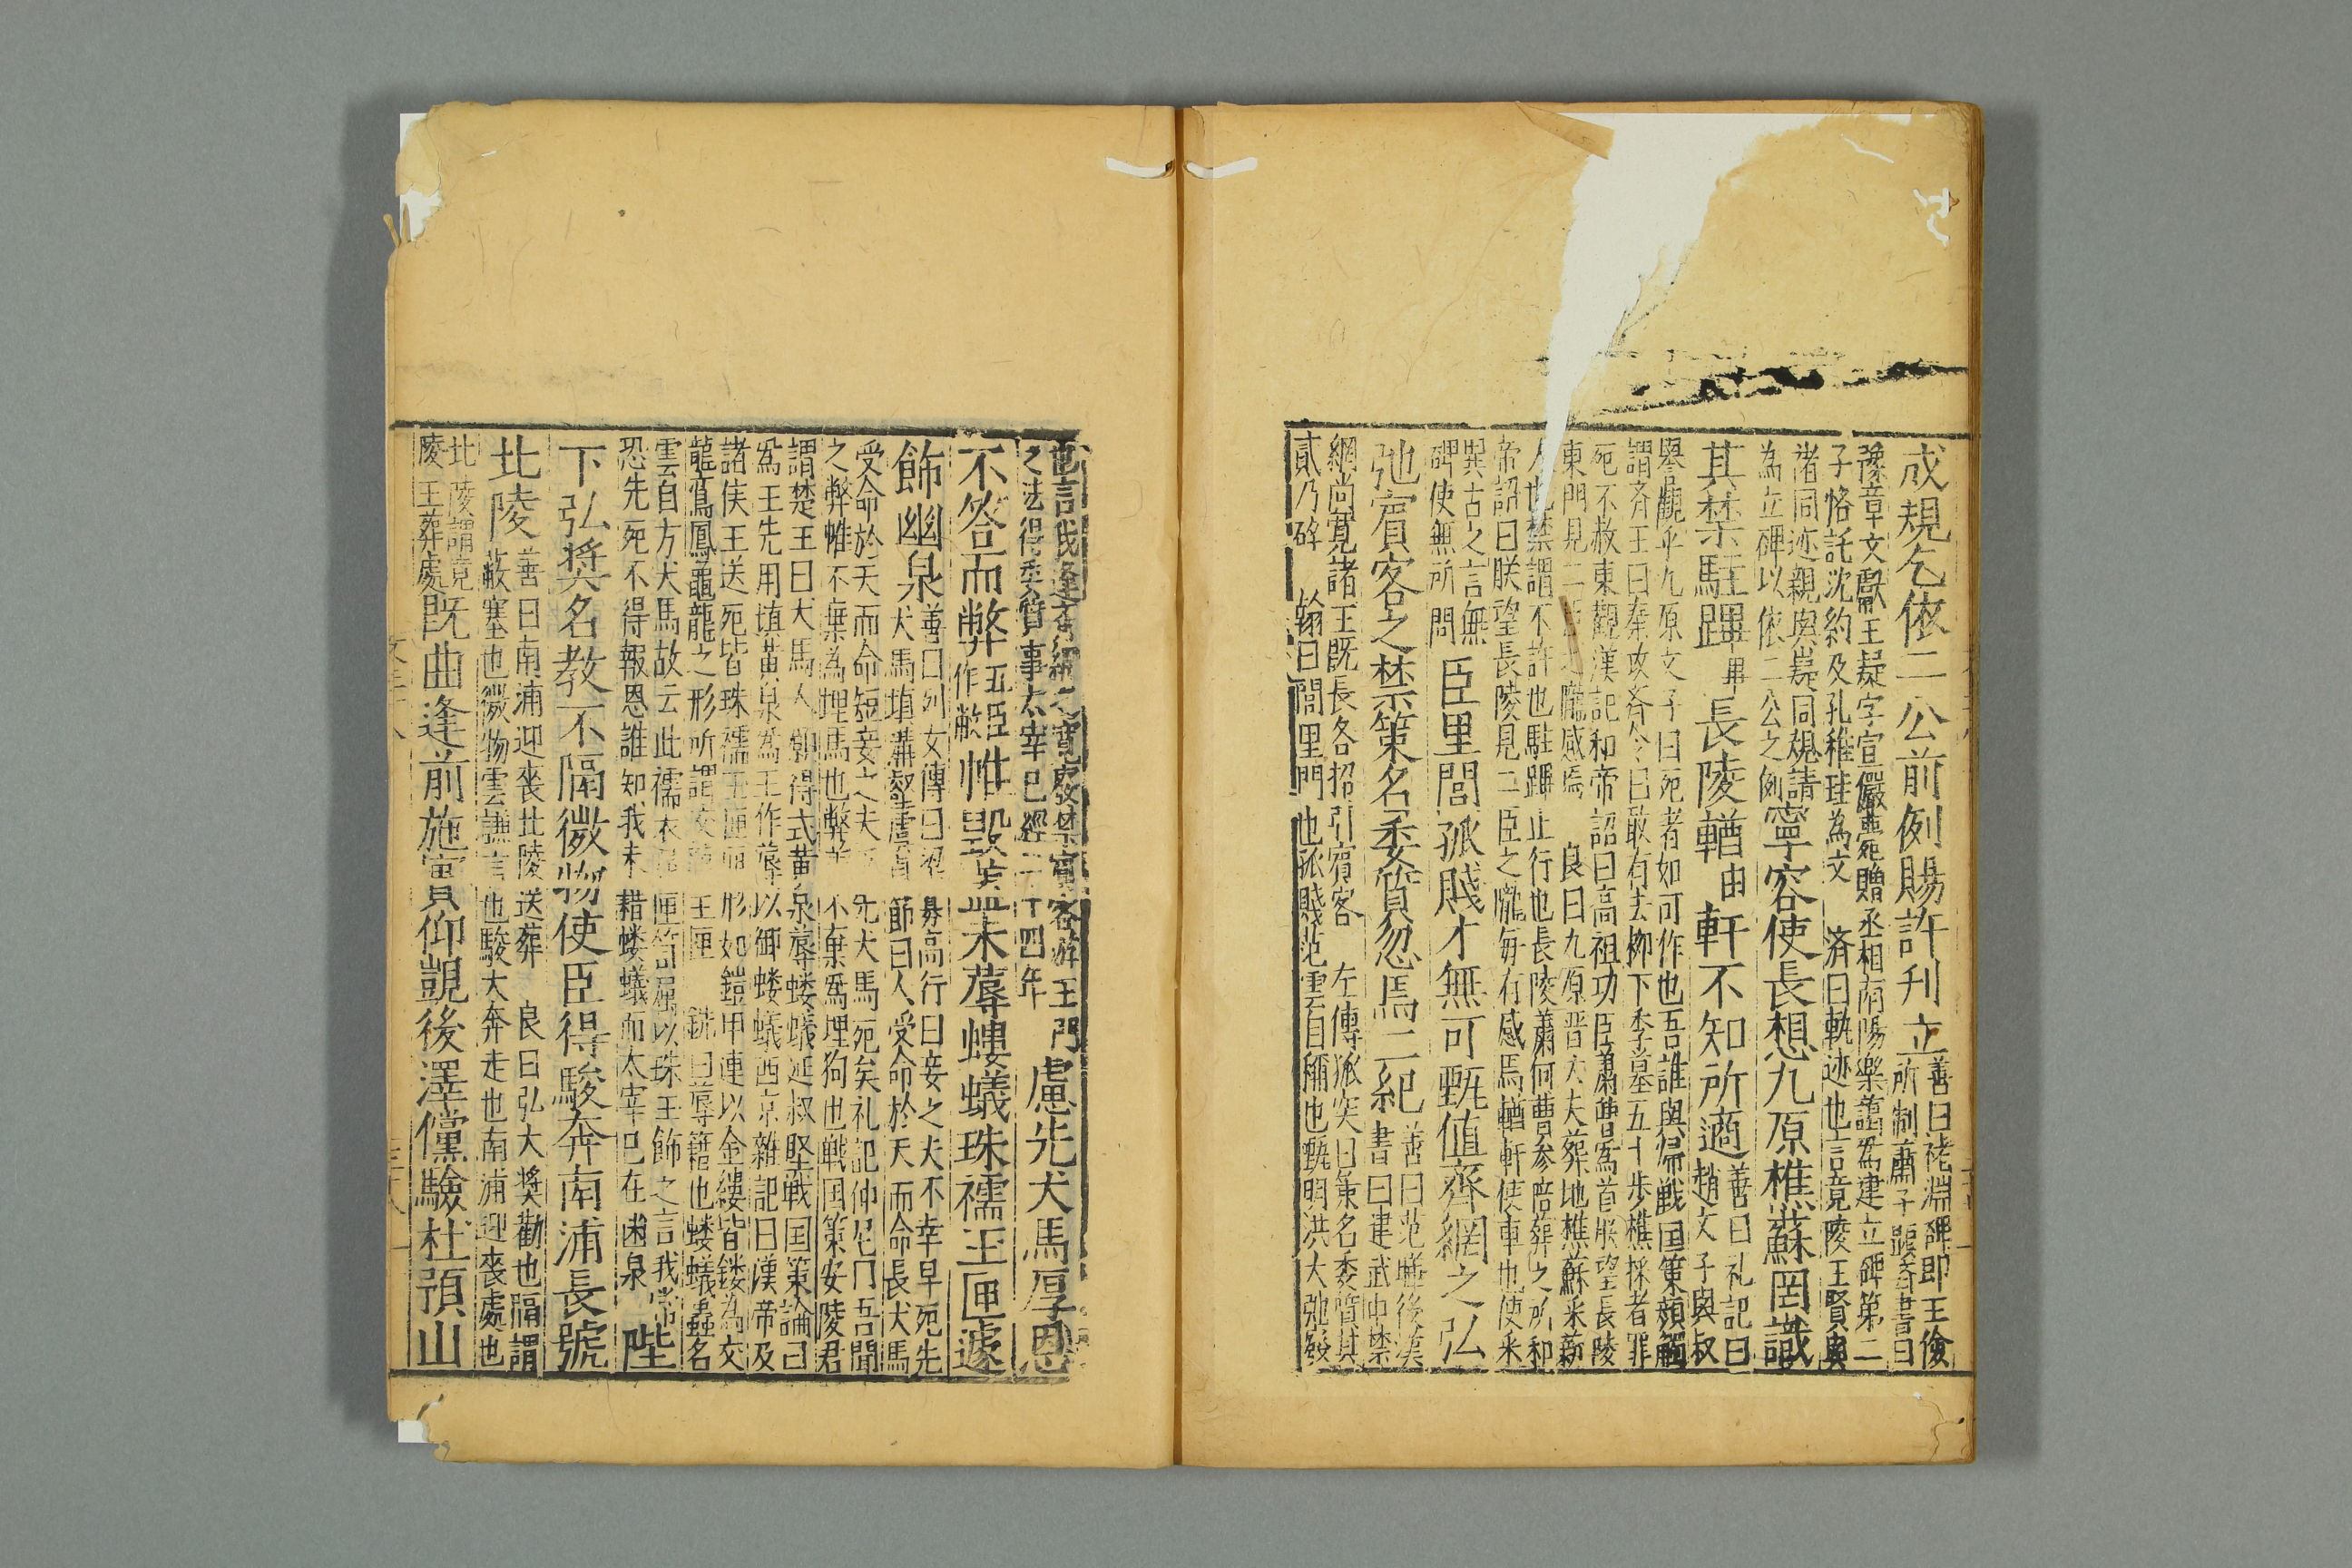 成規乞依二公前例賜許刋立善曰褚淵碑即王儉
所制蕭子顯齊書曰
豫章文獻王嶷字宣儼薨贈丞相南陽樂藹為建立碑第二
子恪託沈約及孔稚珪為文 済曰軌迹也言竟陵王賢與
諸同迹親與嶷同規請
為立碑以依二公之例寧容使長想九原樵蘇罔識
其禁駐蹕畢長陵輶由軒不知所適善曰礼記曰
趙文子與叔
譽觀乎九原文子曰死者如可作也吾誰與歸戦国策顔觸
謂斉王曰秦攻斉令曰敢有去柳下季墓五十步樵採者罪
死不赦東觀漢記和帝詔曰高祖功臣蕭曹為首朕望長陵
東門見二臣之隴感焉 良曰九原晋大夫葬地樵蘇采薪
人也禁謂不許也駐蹕止行也長陵蕭何曹参陪葬之所和
帝詔曰朕望長陵見二臣之隴每有感焉輶軒使車也使来
異古之言無
碑使無所問臣里閭孤賤才無可甄值齊網之弘
弛賓客之禁策名委質忽焉二紀善曰范曄後漢
書曰建武中禁
網尚寛諸王既長各招引賓客 左傳狐突曰策名委質其
貳乃碑 翰曰閭里門也孤賤范雲自稱也甄明洪大弛緩
也言我逢齊網之寛處禁賓客游王門
之法得委質事太宰已經二十四年慮先犬馬厚恩
不答而弊五臣
作敝帷毀蓋未蓐螻蟻珠襦玉匣遽
飾幽泉善曰列女傳曰梁寡高行曰妾之夫不幸早死先
犬馬塡溝壑虞 節曰人受命於天而命長犬馬
受命於天而命短妾之夫 先犬馬死矣礼記仲尼曰吾聞
之弊帷不棄為埋馬也弊蓋不棄為埋狗也戦国策安陵君
謂楚王曰犬馬 得式黄泉蓐螻蟻延叔堅戦国策論曰
為王先用填黃泉為王作蓐以御螻蟻西京雜記曰漢帝及
諸侯王送死皆珠襦玉匣匣形如鎧甲連以金縷皆鏤為交
龍鸞鳳龜龍之形所謂交龍玉匣 銑曰蓐籍也螻蟻蟲名
雲自方犬馬故云此襦衣 匣笥屬以珠玉飾之言我常
恐先死不得報恩誰知我未藉螻蟻而太宰已在幽泉 陛
下弘奨名教不隔微物使臣得駿奔南浦長號
北陵善曰南浦迎喪北陵送葬 良曰弘大奨勸也隔謂
蔽塞也微物雲謙言也駿大奔走也南浦迎喪處也
北陵謂竟
陵王葬處既曲逢前施實仰覬後澤儻驗杜預山